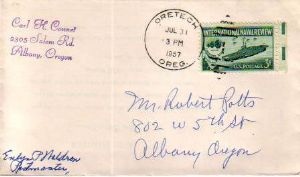 Carl H. Connet
2305 Salem Rd.
Albany, Oregon
ORETECH
JUL 31
3 PM
1957
OREG.
INTERNATIONAL NAVAL REVIEW
U.S. POSTAGE 3¢
Mr. Robert Potts
802 W 5th St
Albany Oregon
Postmaster